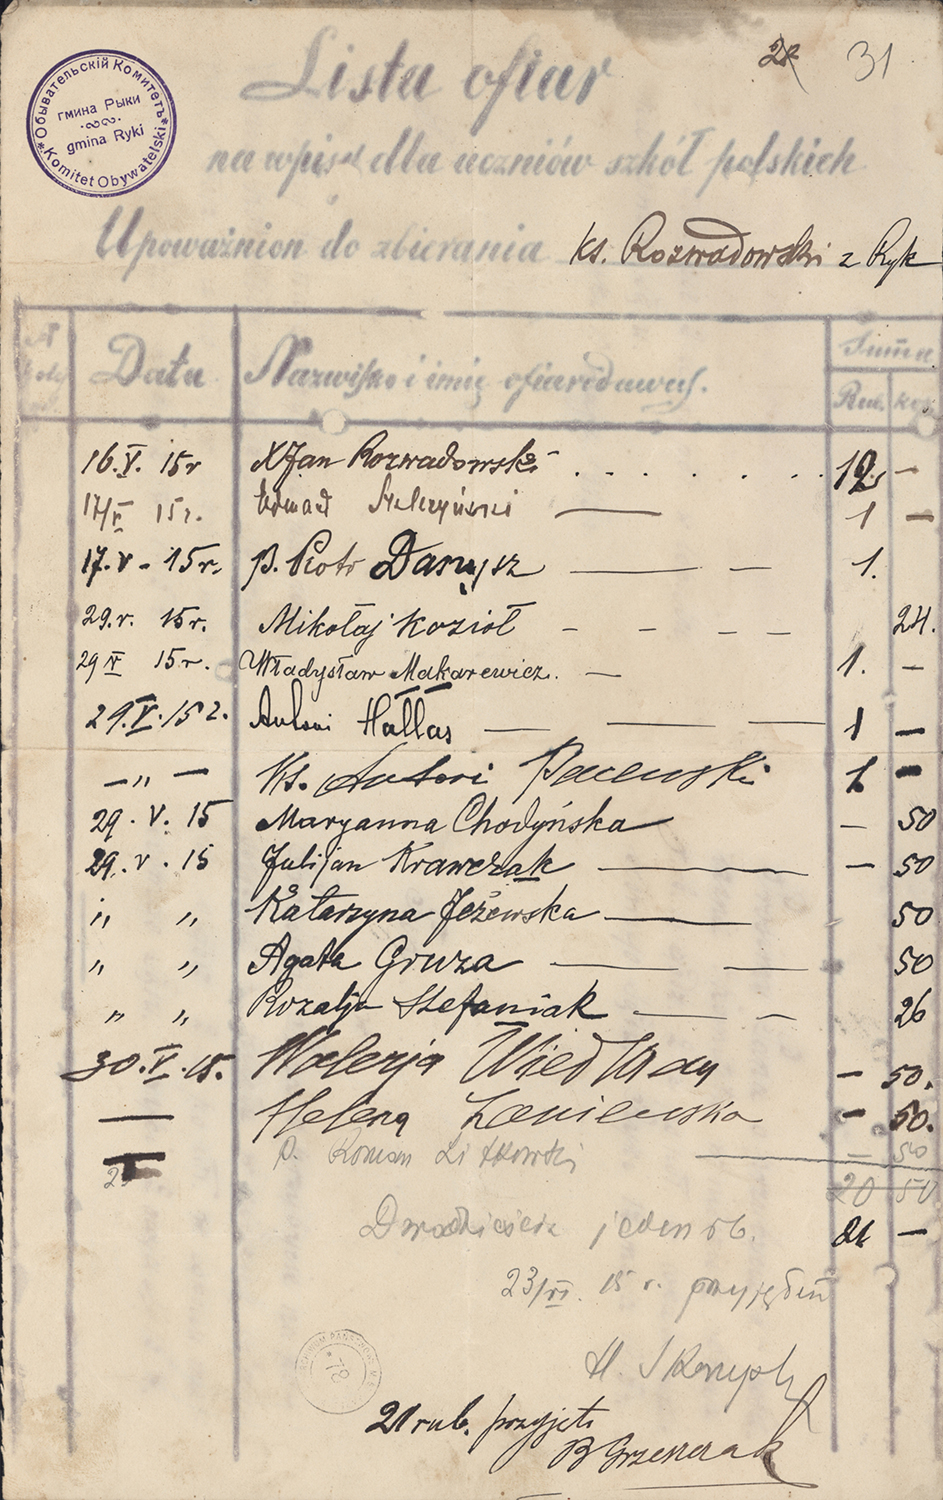 Обывательскій Комитетъ
гмина Рыки
gmina Ryki
Komitet Obywatelski
31
Lista ofiar
na wpisy dla uczniów szkół polskich
Upoważnion do zbierania ks. Rozwadowski z Ryk
Data Nazwisko i imię ofiarodawcy. Suma
Rub. kop.
16.V. 15r X Jan Rozwadowski . . . . . . 12. —
17/V 15r. — 1 —
17.V - 15r. p. Piotr Danysz — — 1.
29.V. 15r. Mikołaj Kozioł — — — — 24.
29 V 15r. Władysław Makarewicz. — 1. —
29.V.15r. Antoni Hałłas — — — 1 —
— „ — Ks. Antoni — 1 —
29. V. 15 Maryanna Chodyńska — 50
29. V. 15 Julijan Krawczak — — 50
„ „ Katarzyna Jeżewska — 50
„ „ Agata Gruza — — 50
„ „ Rozalja Stefaniak — — 26
30.V.15. Walerja Wiedman — 50.
— Helena Zaniewska — 50.
p. Roman Litkowski — 50
20 50
Dwadzieścia jeden rb. 21 —
23/VI. 15 r. przyjęłam
H.
78
21 rub. przyjęto
B Grzeszczak